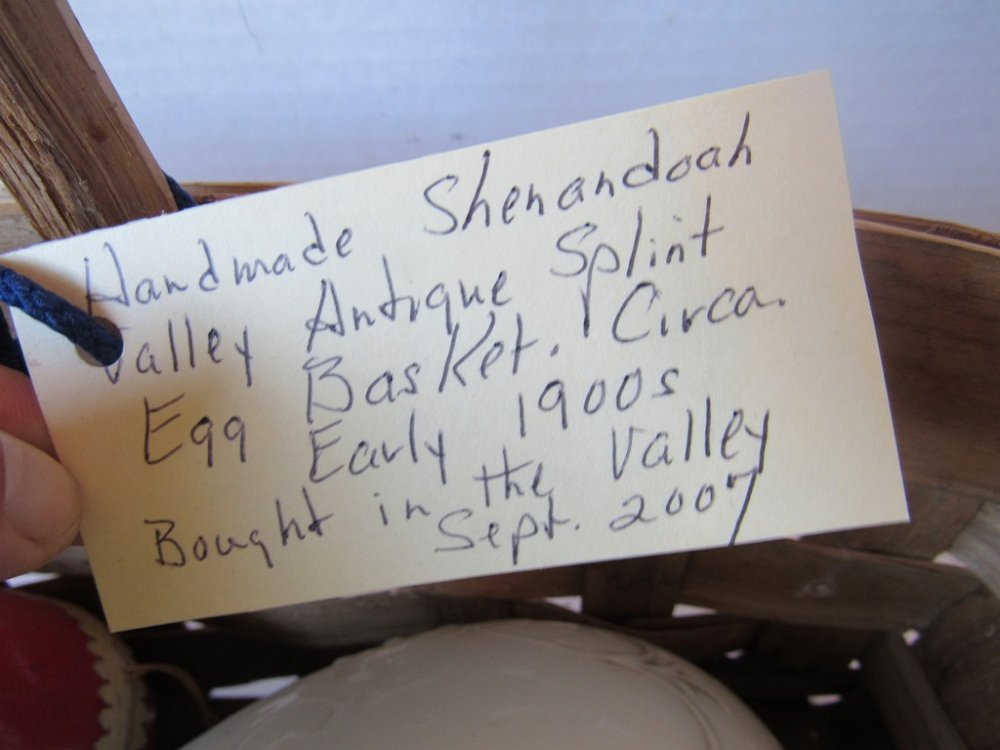 Handmade Shenandoah
Valley Antique Splint
Egg Basket. Circa.
Early 1900s
Bought in the Valley
Sept. 2007